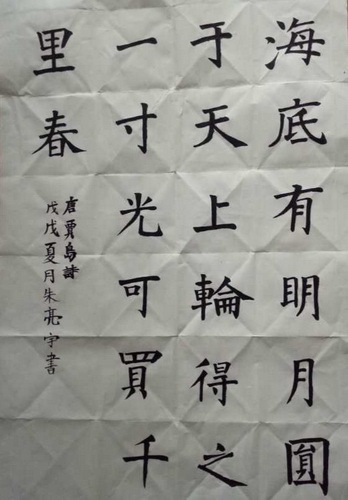 海底有明月圓
于天上輪得之
一寸光可買千
里春
唐賈島詩
戊戌夏月朱亮宇書